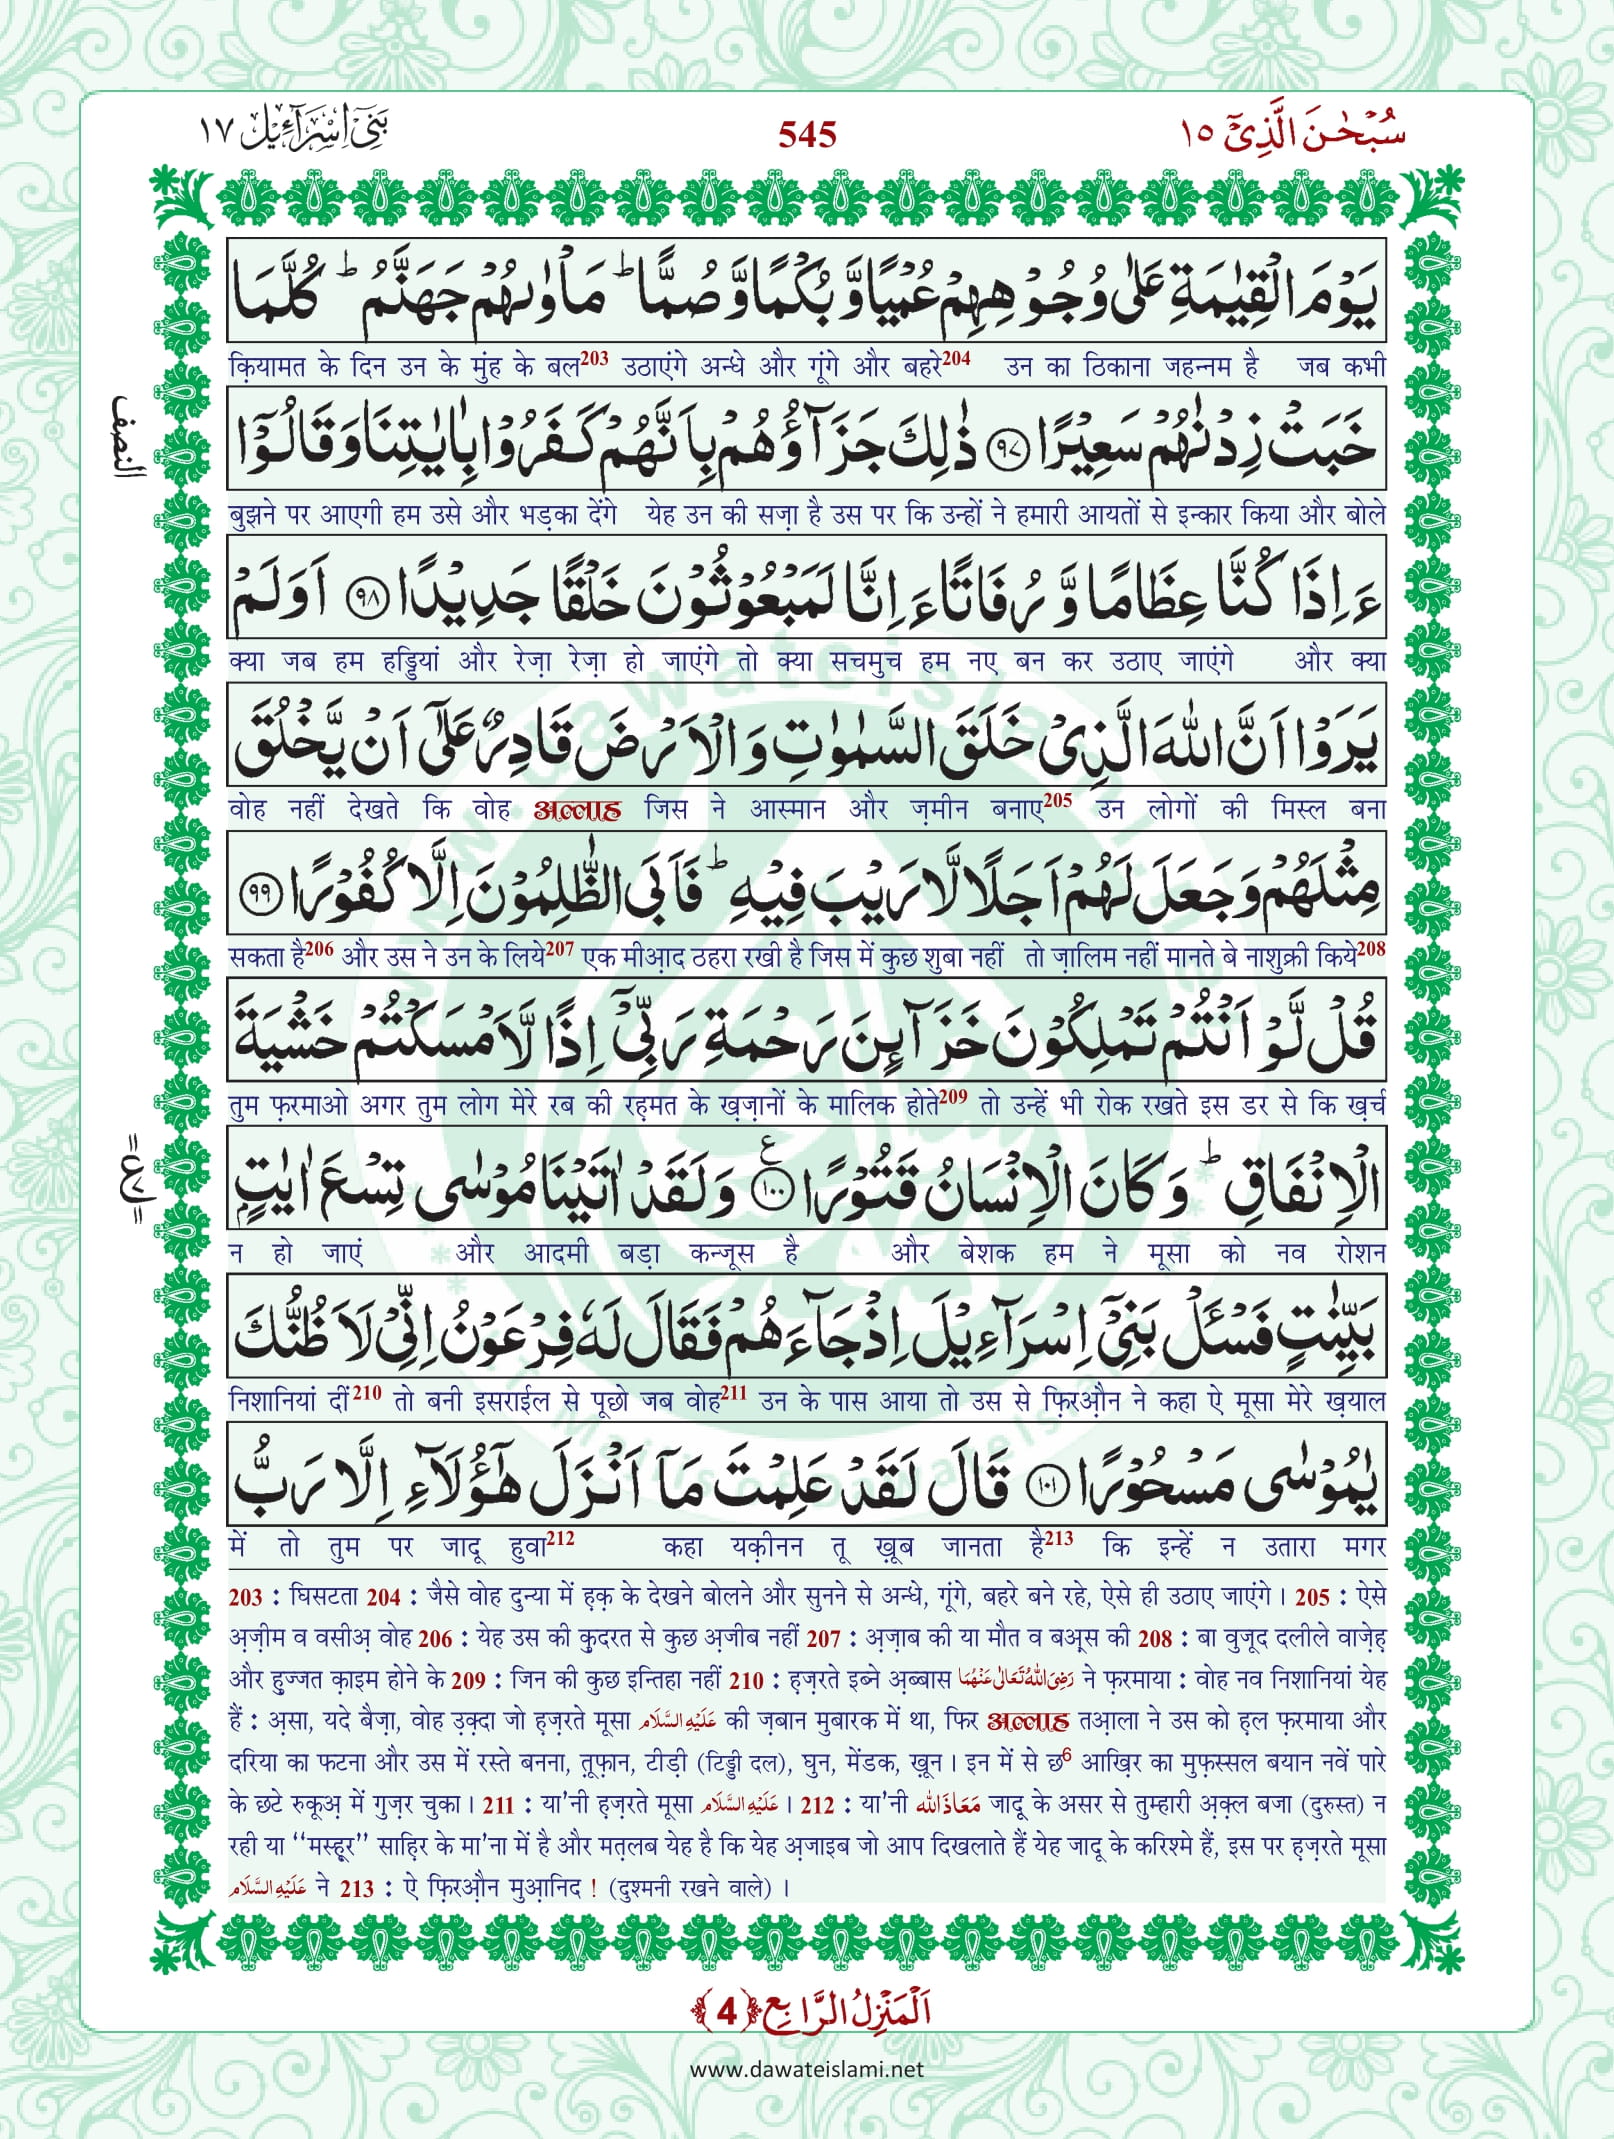 سُبْحٰنَ الَّذِیْۤ ١٥ 545 بَنِیْۤ اِسْرَآءِیْل ١٧
یَوْمَ الْقِیٰمَةِ عَلٰى وُجُوْهِهِمْ عُمْیًا وَّ بُكْمًا وَّ صُمًّاؕ مَاْوٰىهُمْ جَهَنَّمُؕ كُلَّمَا
क़ियामत के दिन उन के मुंह के बल203 उठाएंगे अन्धे और गूंगे और बहरे204 उन का ठिकाना जहन्नम है जब कभी
خَبَتْ زِدْنٰهُمْ سَعِیْرًا ٩٧ ذٰلِكَ جَزَآؤُهُمْ بِاَنَّهُمْ كَفَرُوْا بِاٰیٰتِنَا وَ قَالُوْۤا
النصف
बुझने पर आएगी हम उसे और भड़का देंगे येह उन की सज़ा है उस पर कि उन्हों ने हमारी आयतों से इन्कार किया और बोले
ءَاِذَا كُنَّا عِظَامًا وَّ رُفَاتًا ءَاِنَّا لَمَبْعُوْثُوْنَ خَلْقًا جَدِیْدًا ٩٨ اَوَ لَمْ
क्या जब हम हड्डियां और रेज़ा रेज़ा हो जाएंगे तो क्या सचमुच हम नए बन कर उठाए जाएंगे और क्या
یَرَوْا اَنَّ اللّٰهَ الَّذِیْ خَلَقَ السَّمٰوٰتِ وَ الْاَرْضَ قَادِرٌ عَلٰۤى اَنْ یَّخْلُقَ
वोह नहीं देखते कि वोह अल्लाह जिस ने आस्मान और ज़मीन बनाए205 उन लोगों की मिस्ल बना
مِثْلَهُمْ وَ جَعَلَ لَهُمْ اَجَلًا لَّا رَیْبَ فِیْهِؕ فَاَبَى الظّٰلِمُوْنَ اِلَّا كُفُوْرًا ٩٩
सकता है206 और उस ने उन के लिये207 एक मीआ़द ठहरा रखी है जिस में कुछ शुबा नहीं तो ज़ालिम नहीं मानते बे नाशुक्री किये208
قُلْ لَّوْ اَنْتُمْ تَمْلِكُوْنَ خَزَآىٕنَ رَحْمَةِ رَبِّیْۤ اِذًا لَّاَمْسَكْتُمْ خَشْیَةَ
तुम फ़रमाओ अगर तुम लोग मेरे रब की रह़मत के ख़ज़ानों के मालिक होते209 तो उन्हें भी रोक रखते इस डर से कि ख़र्च
الْاِنْفَاقِؕ وَ كَانَ الْاِنْسَانُ قَتُوْرًا ١٠٠ وَ لَقَدْ اٰتَیْنَا مُوْسٰى تِسْعَ اٰیٰتٍۭ
न हो जाएं और आदमी बड़ा कन्जूस है और बेशक हम ने मूसा को नव रोशन
بَیِّنٰتٍ فَسْـَٔلْ بَنِیْۤ اِسْرَآءِیْلَ اِذْ جَآءَهُمْ فَقَالَ لَهٗ فِرْعَوْنُ اِنِّیْ لَاَظُنُّكَ
निशानियां दीं210 तो बनी इसराईल से पूछो जब वोह211 उन के पास आया तो उस से फ़िरऔ़न ने कहा ऐ मूसा मेरे ख़याल
یٰمُوْسٰى مَسْحُوْرًا ١٠١ قَالَ لَقَدْ عَلِمْتَ مَاۤ اَنْزَلَ هٰۤؤُلَآءِ اِلَّا رَبُّ
में तो तुम पर जादू हुवा212 कहा यक़ीनन तू ख़ूब जानता है213 कि इन्हें न उतारा मगर
203 : घिसटता 204 : जैसे वोह दुन्या में ह़क़ के देखने बोलने और सुनने से अन्धे, गूंगे, बहरे बने रहे, ऐसे ही उठाए जाएंगे । 205 : ऐसे
अ़ज़ीम व वसीअ़ वोह 206 : येह उस की क़ुदरत से कुछ अ़जीब नहीं 207 : अ़ज़ाब की या मौत व बअ़्स की 208 : बा वुजूद दलीले वाज़ेह़
और ह़ुज्जत क़ाइम होने के 209 : जिन की कुछ इन्तिहा नहीं 210 : ह़ज़रते इब्ने अ़ब्बास رَضِیَ اللّٰهُ تَعَالٰی عَنْهُمَا ने फ़रमाया : वोह नव निशानियां येह
हैं : अ़सा, यदे बैज़ा, वोह उ़क़्दा जो ह़ज़रते मूसा عَلَیْهِ السَّلَام की ज़बान मुबारक में था, फिर अल्लाह तआ़ला ने उस को ह़ल फ़रमाया और
दरिया का फटना और उस में रस्ते बनना, त़ूफ़ान, टीड़ी (टिड्डी दल), घुन, मेंडक, ख़ून । इन में से छ6 आख़िर का मुफ़स्सल बयान नवें पारे
के छटे रुकूअ़ में गुज़र चुका । 211 : या'नी ह़ज़रते मूसा عَلَیْهِ السَّلَام । 212 : या'नी مَعَاذَ اللّٰه जादू के असर से तुम्हारी अ़क़्ल बजा (दुरुस्त) न
रही या ''मस्ह़ूर'' साह़िर के मा'ना में है और मत़लब येह है कि येह अ़जाइब जो आप दिखलाते हैं येह जादू के करिश्मे हैं, इस पर ह़ज़रते मूसा
عَلَیْهِ السَّلَام ने 213 : ऐ फ़िरऔ़न मुआ़निद ! (दुश्मनी रखने वाले) ।
اَلْمَنْزِلُ الرَّابِع ﴿4﴾
www.dawateislami.net